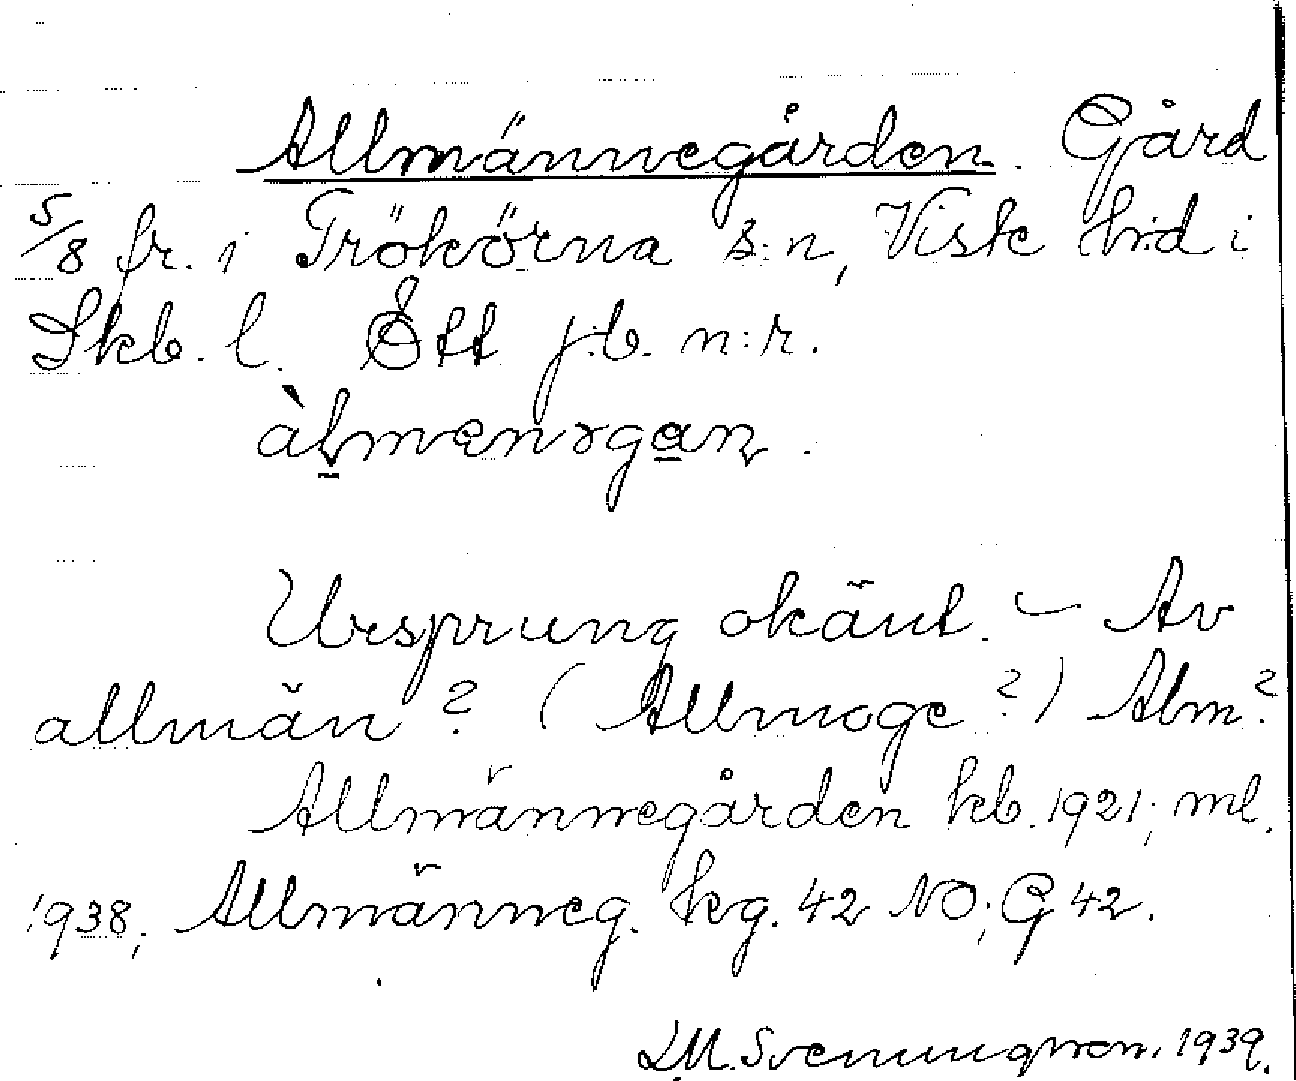 Allmännegården. Gård
5/8 fr. i Trökörna s:n, Viste h:d i
Skb. l. Ett j.b. n:r.
àlmenɤgan.
Ursprung okänt. – Av
allmän? (Allmoge?) Alm?
Allmännegården kb. 1921; ml.
1938; Allmänneg. kg. 42 NO; G 42.
1939.